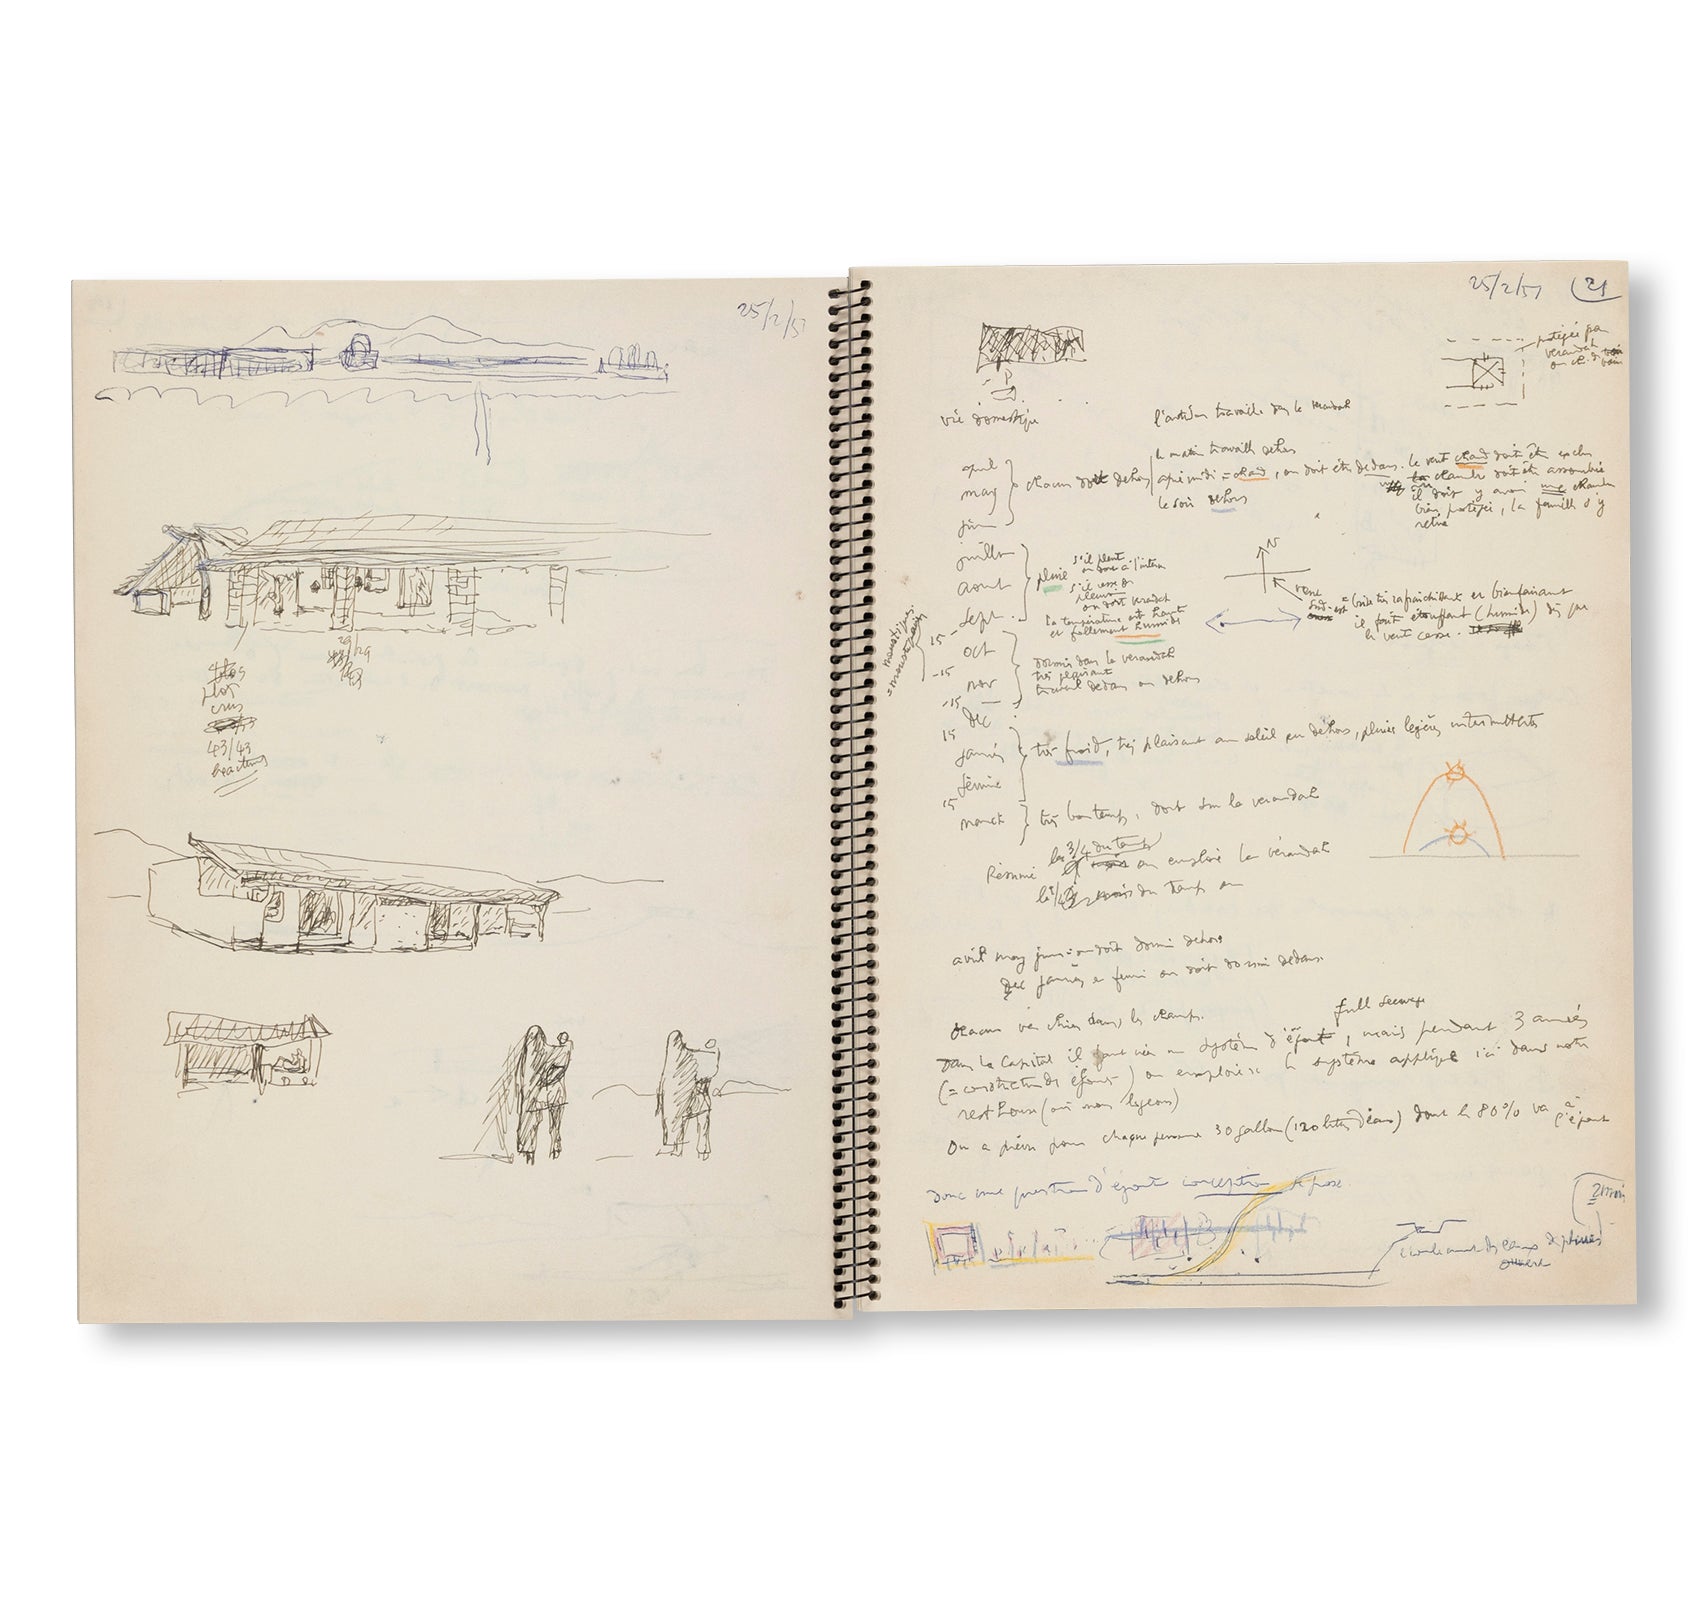 25/2/51
plot
crus
43/43
29/29
25/2/51
21
protégée par
verandah
vie domestique
l'artisan travaille dans le verandah
le matin travaille dehors
avril
may
juin
chacun dort dehors
après midi = chaud, on doit être dedans. le vent chaud doit être exclu
la chambre doit être assombrie
il doit y avoir une chambre
bien protégée, la famille s'y
retire
le soir dehors
juillet
aout
sept.
pluie
s'il pleut
on dort à l'intérieur
s'il cesse de
pleuvoir
on dort verandah
la température est haute
et follement humide
N
vent
sud-est
= brise très rafraichissant et bienfaisant
il fait étouffant (humide) dès que
le vent cesse.
moustiques
= moustiquaire
15
oct
-15
nov
-15
dormir dans le verandah
très plaisant
travail dedans ou dehors
dec
15
janvier
février
très froid, très plaisant au soleil en dehors, pluies légères intermittentes
15
march
très bon temps, dort sur la verandah
Résumé
les 3/4 du temps
on emploie la vérandah
le 1/4 du temps on
avril may juin : on doit dormir dehors
dec janvier et fevrier on doit dormir dedans.
chacun va chier dans les champs.
full sewage
Dans la Capital il faut un système d'égout, mais pendant 3 années
(= construction des égouts) on emploiera le système appliqué ici dans notre
rest house (où nous logeons)
On a prévu pour chaque personne 30 gallon (120 litres d'eau) dont le 80% va à
l'égout
donc une question d'égout conception se pose.
2 mois
écoulement des eaux de pluies
ouvert